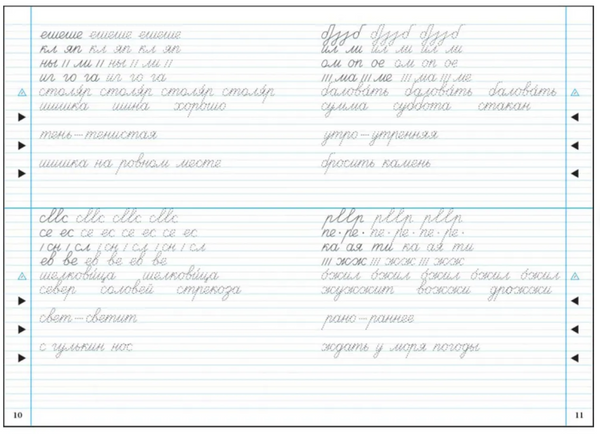 ешеше ешеше ешеше
кл яп кл яп кл яп
ны // ли // ны // ли //
иг го га иг го га
столя́р столя́р столя́р столя́р
шишка шина хорошо
тень–тенистая
шишка на ровном месте
ил ли ил ли ил ли
ом оп ое ом оп ое
/// ма /// ме /// ма /// ме
балова́ть балова́ть балова́ть
сумма суббота стакан
утро–утренняя
бросить камень
се ес се ес се ес се ес
/ сн / сл / сн / сл / сн / сл
ев ве ев ве ев ве
шелкови́ца шелкови́ца
север соловей стрекоза
свет–светит
с гулькин нос
10
пе · ре · пе · ре · пе · ре ·
ка ая ти ка ая ти
/// жж /// жж /// жж
жужжит вожжи дрожжи
рано–раннее
ждать у моря погоды
11